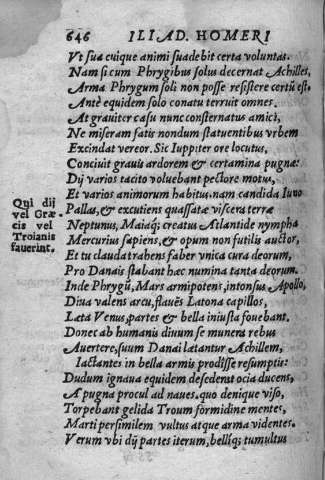 646 ILIAD. HOMERI
Vt sua cuique animi suadebit certa voluntas.
Nam si cum Phrygibus solus decernat Achilles,
Arma Phrygum soli non posse resistere certũ est.
Antè equidem solo conatu terruit omnes.
At grauiter casu nunc consternatus amici,
Ne miseram fatis nondum statuentibus vrbem
Excindat vereor. Sic Iuppiter ore locutus,
Conciuit grauis ardorem & certamina pugnæ:
Dij varios tacito voluebant pectore motus,
Et varios animorum habitus. nam candida Iuno
Pallas, & excutiens quassatæ viscera terræ
Neptunus, Maiaq; creatus Atlantide nympha
Mercurius sapiens, & opum non futilis auctor,
Et tu clauda trahens faber vnica cura deorum,
Pro Danais stabant hæc numina tanta deorum.
Inde Phrygiũ, Mars armipotens, intonsus Apollo,
Diua valens arcu, flaués Latona capillos,
Læta Venus, partes & bella iniusta fouebant.
Donec ab humanis diuum se munera rebus
Auertere, suum Danai lætantur Achillem,
Iactantes in bella armis prodisse resumptis:
Dudum ignaua equidem desedenst ocia ducens,
A pugna procul ad naues. quo denique viso,
Torpebant gelida Troum formidine mentes,
Marti persimilem vultus atque arma videntes.
Verum vbi dij partes iterum, belliq; tumultus
Qui dij
vel Græ-
cis vel
Troianis
fauerint.